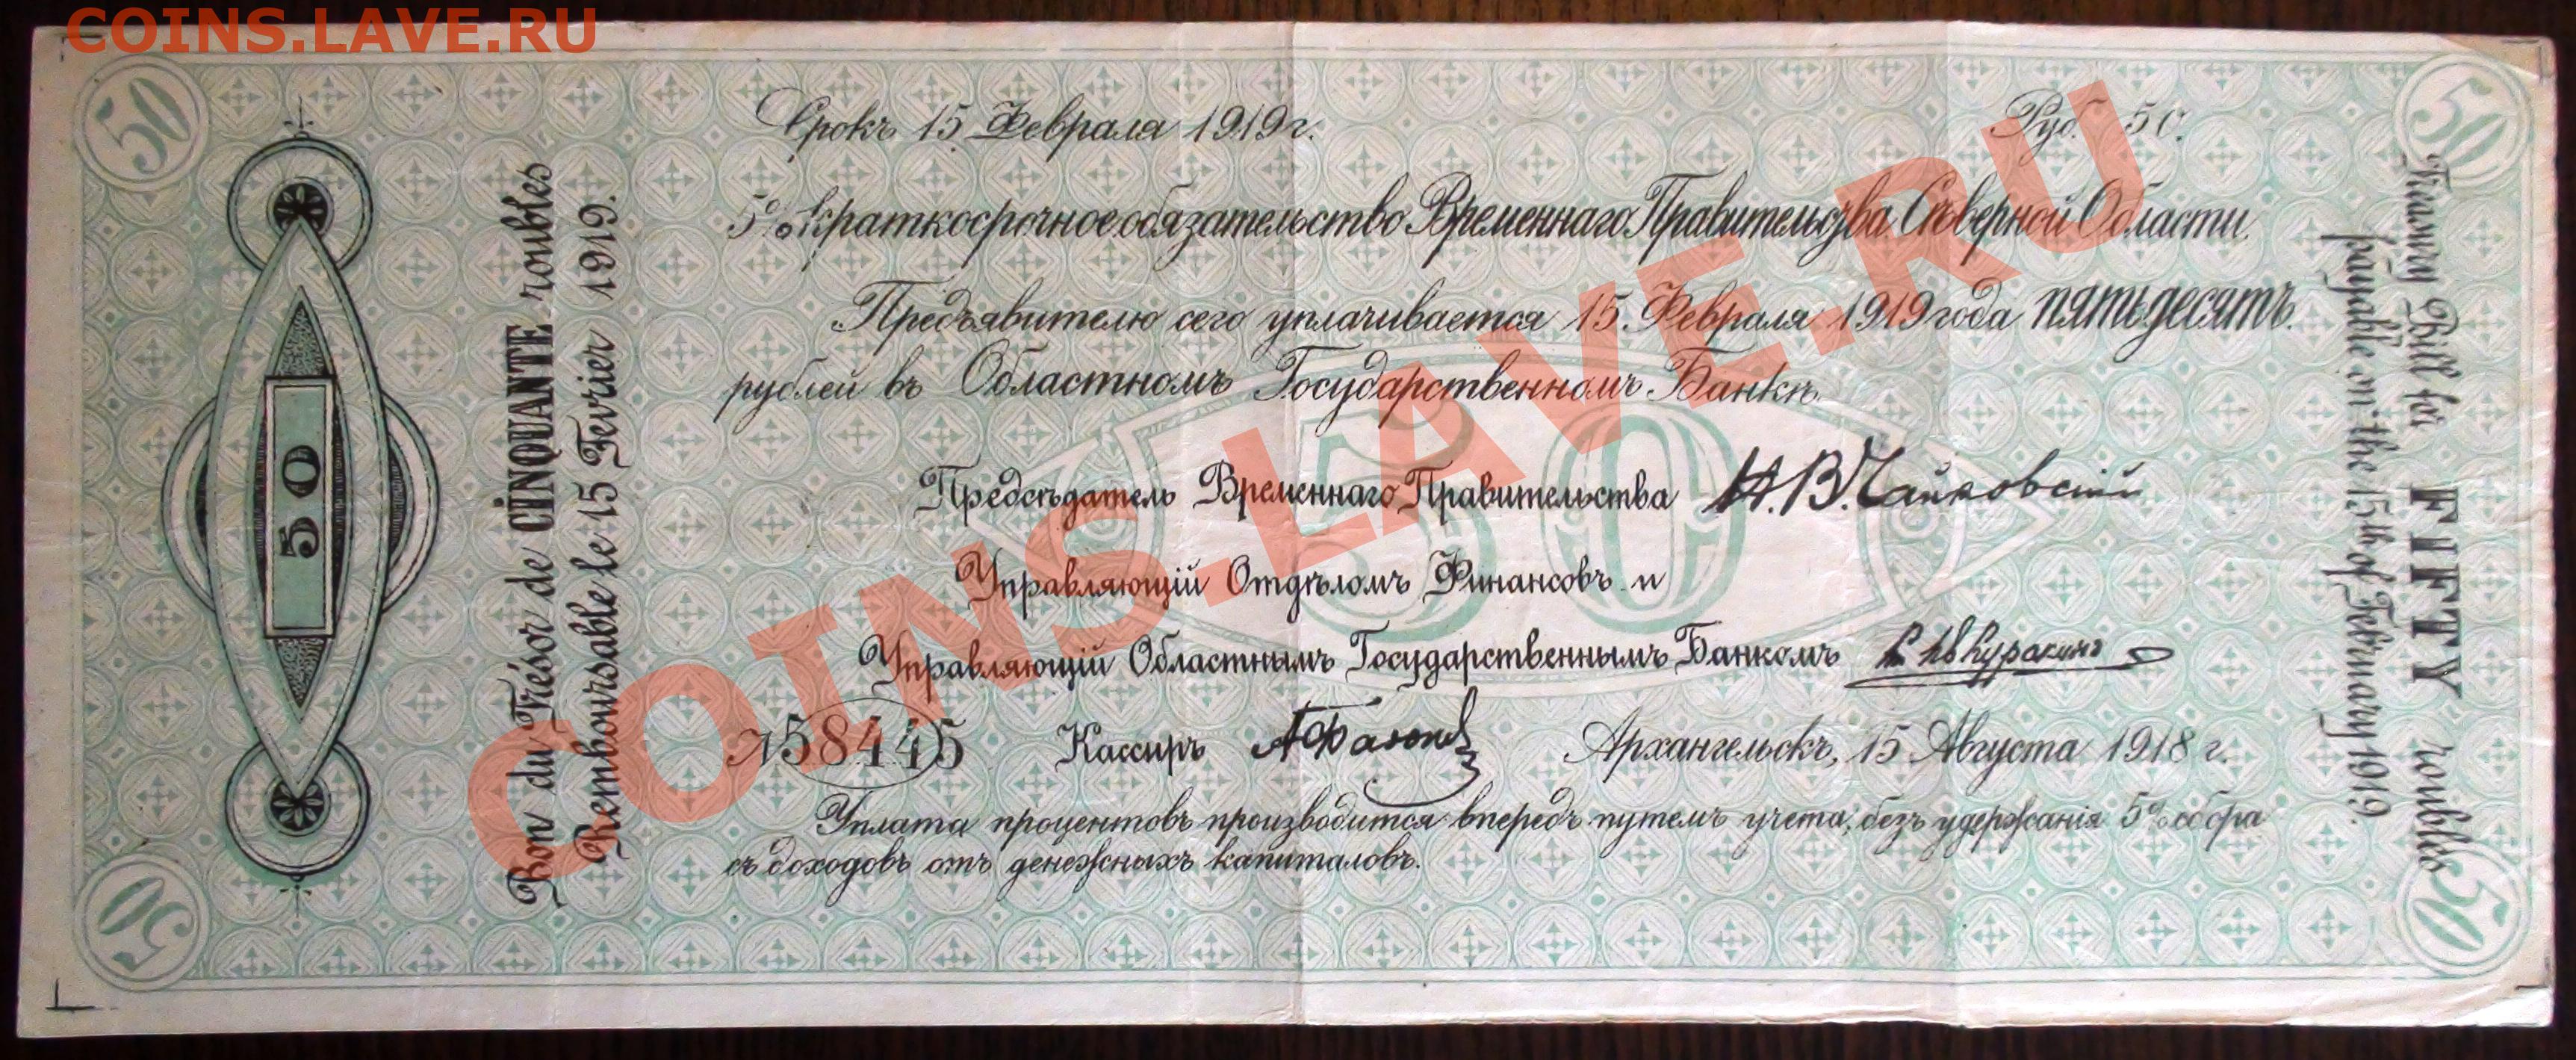 COINS.LAVE.RU
50
50
Срокъ 15 Февраля 1919 г.
Руб. 50.
5% краткосрочное обязательство Временнаго Правительства Сѣверной Области.
Предъявителю сего уплачивается 15. Февраля 1919 года пятьдесятъ
рублей въ Областномъ Государственномъ Банкѣ.
50
Предсѣдатель Временнаго Правительства Н.В.Чайковскій
Управляющій Отдѣломъ Финансовъ и
Управляющій Областнымъ Государственнымъ Банкомъ
№ 58445 Кассиръ
Архангельскъ, 15 Августа 1918 г.
Уплата процентовъ производится впередъ путемъ учета, безъ удержанія 5% сбора
съ доходовъ отъ денежныхъ капиталовъ.
50
Bon du Trésor de CINQUANTE roubles
Remboursable le 15 Fevrier 1919.
Treasury Bill for FIFTY roubles
payable on the 15th of February 1919.
50
50
COINS.LAVE.RU